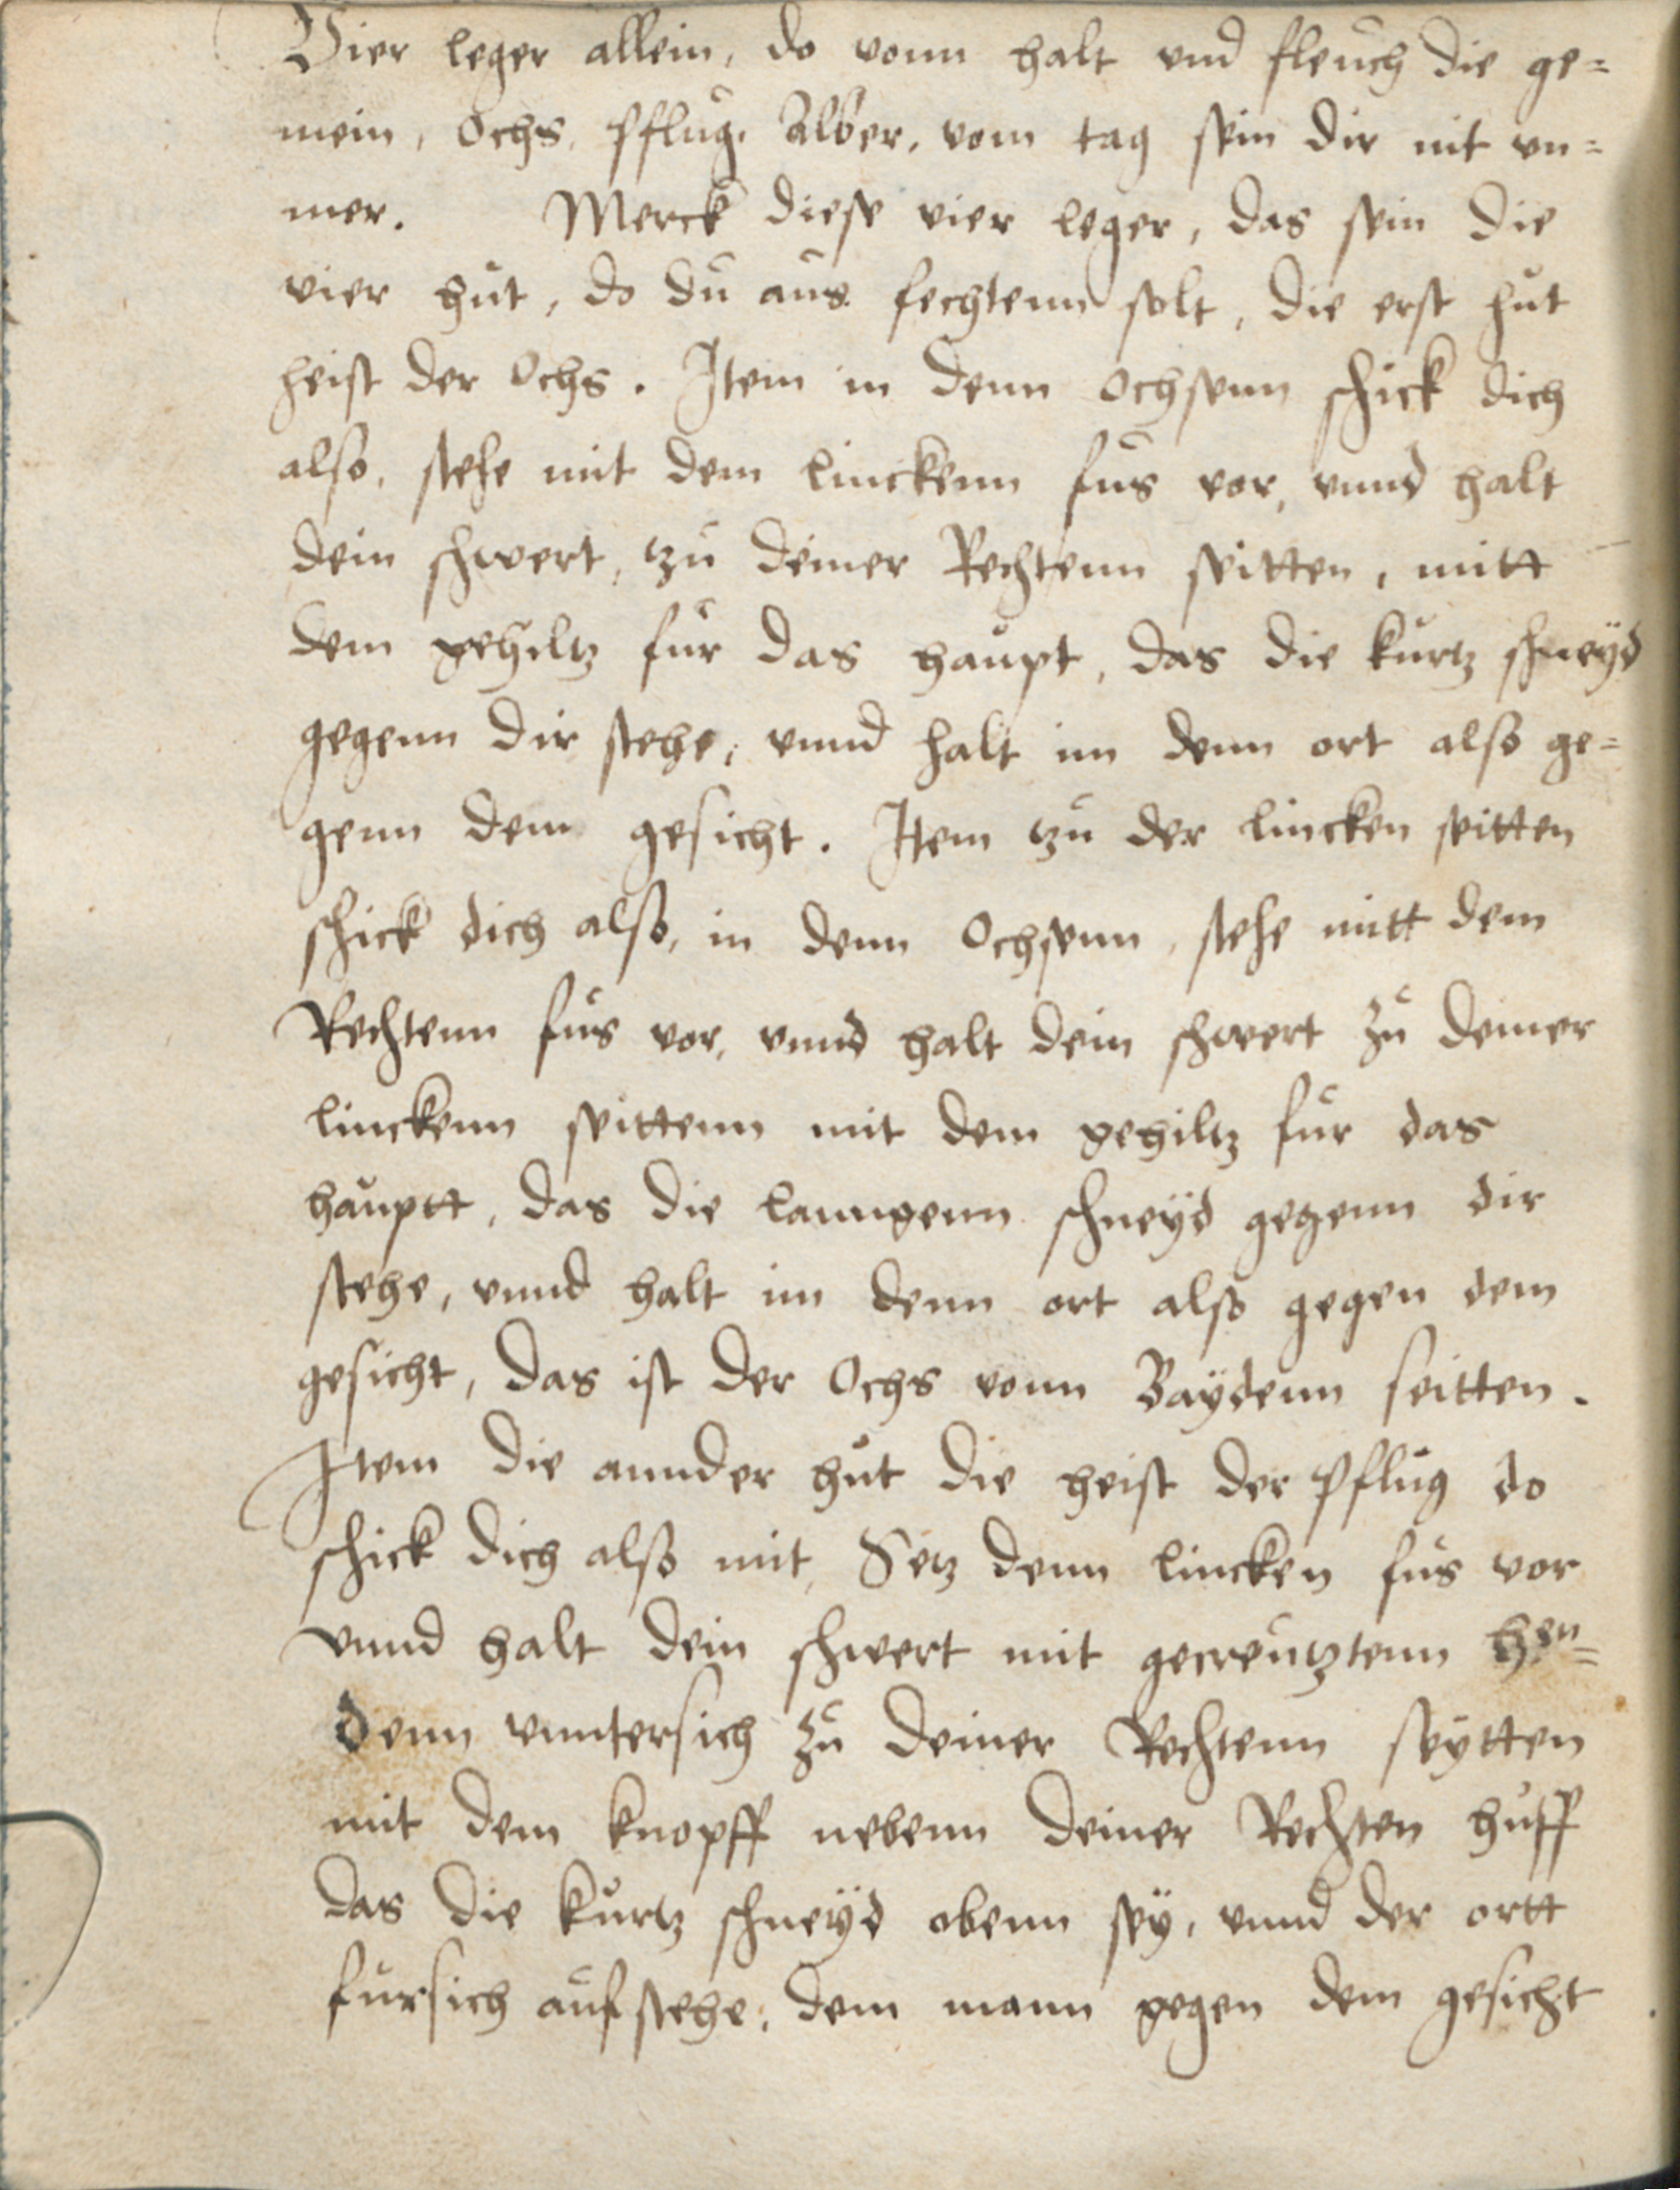 Vier leger allein, do vonn halt vnd fleuch die ge=
mein, Ochs, Pflug, Alber, vom tag sein dir nit vn=
mer. Merck diese vier leger, das sein die
vier hut, do du aus fechtenn solt, die erst hut
heist der Ochs. Item in denn Ochsenn schick dich
also, stehe mit dem linckenn fus vor, vnnd halt
dein schwert, tzu deiner Rechtenn seitten, mitt
dem gehiltz fur das haupt, das die kurtz schneyd
gegenn dir stehe, vnnd halt im denn ort also ge=
genn dem gesicht. Item tzu der lincken seitten
schick dich also, in denn Ochsenn, stehe mitt dem
Rechtenn fus vor, vnnd halt dein schwert zu deiner
linckenn seittenn mit dem gehiltz fur das
hauptt, das die lanngenn schneyd gegenn dir
stehe, vnnd halt im denn ort also gegen dem
gesicht, das ist der Ochs vonn Baydenn seitten.
Item die annder hut die heist der Pflug do
schick dich also mit, Setz denn lincken fus vor
vnnd halt dein schwert mit gecreutztenn hen=
denn vnntersich zu deiner Rechtenn seytten
mit dem knopff nebenn deiner Rechten huff
das die kurtz schneyd obenn sey, vnnd der ortt
fursich auf stehe, dem mann gegen dem gesicht